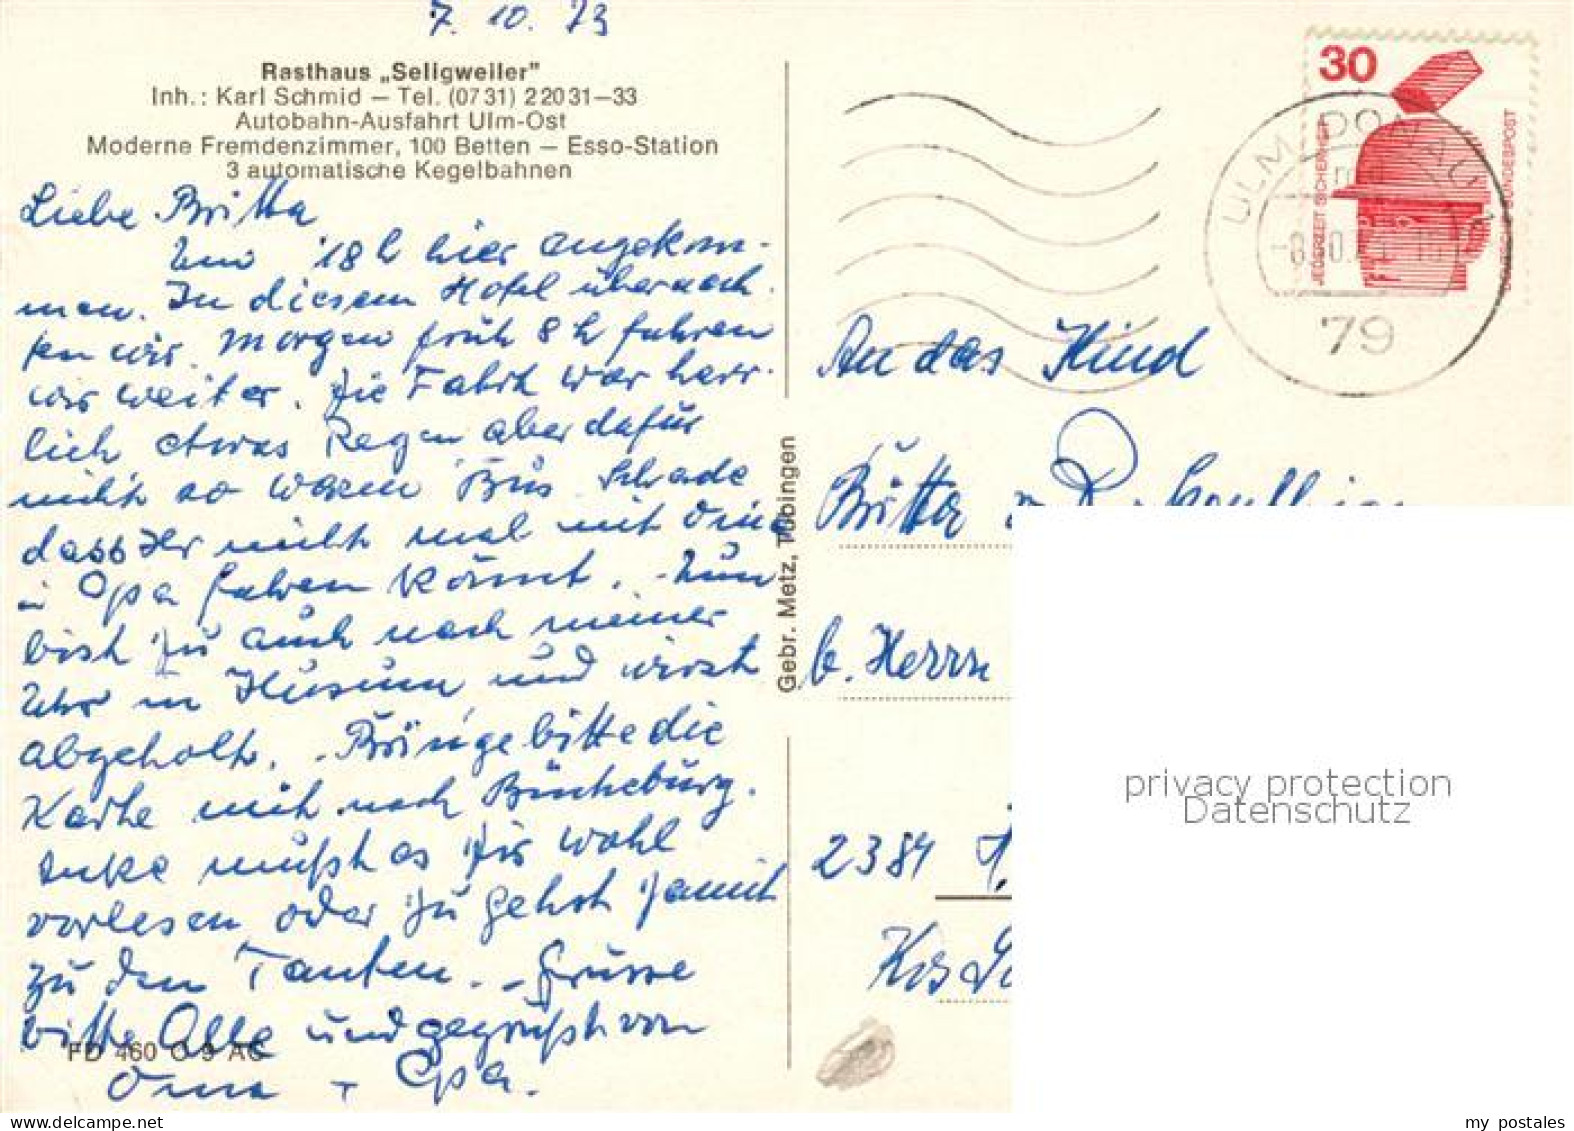 7. 10. 73
Rasthaus „Seligweiler"
Inh.: Karl Schmid — Tel. (07 31) 2 20 31—33
Autobahn-Ausfahrt Ulm-Ost
Moderne Fremdenzimmer, 100 Betten — Esso-Station
3 automatische Kegelbahnen
Liebe Britta
Um 18 h hier angekom-
men. In diesem Hotel übernach-
ten wir. Morgen früh 8 h fahren
wir weiter. Die Fahrt war herr-
lich etwas Regen aber dafür
nicht so warm Bus. Schade
dass Ihr nicht mal mit Oma
u Opa fahren könnt. - Nun
bist Du auch nach meiner
Uhr in Husum und wirst
abgeholt. - Bringe bitte die
Karte mit nach Bückeburg.
Anke mußt es Dir wohl
vorlesen oder Du gehst damit
zu den Tanten. - Grüsse
bitte Alle und gegrüßt von
Oma + Opa.
FD 460 C 9 AC
Gebr. Metz, Tübingen
30
JEDERZEIT SICHERHEIT
DEUTSCHE BUNDESPOST
ULM DONAU
79
An das Kind
Britta
b. Herrn
2384
privacy protection
Datenschutz
my postales